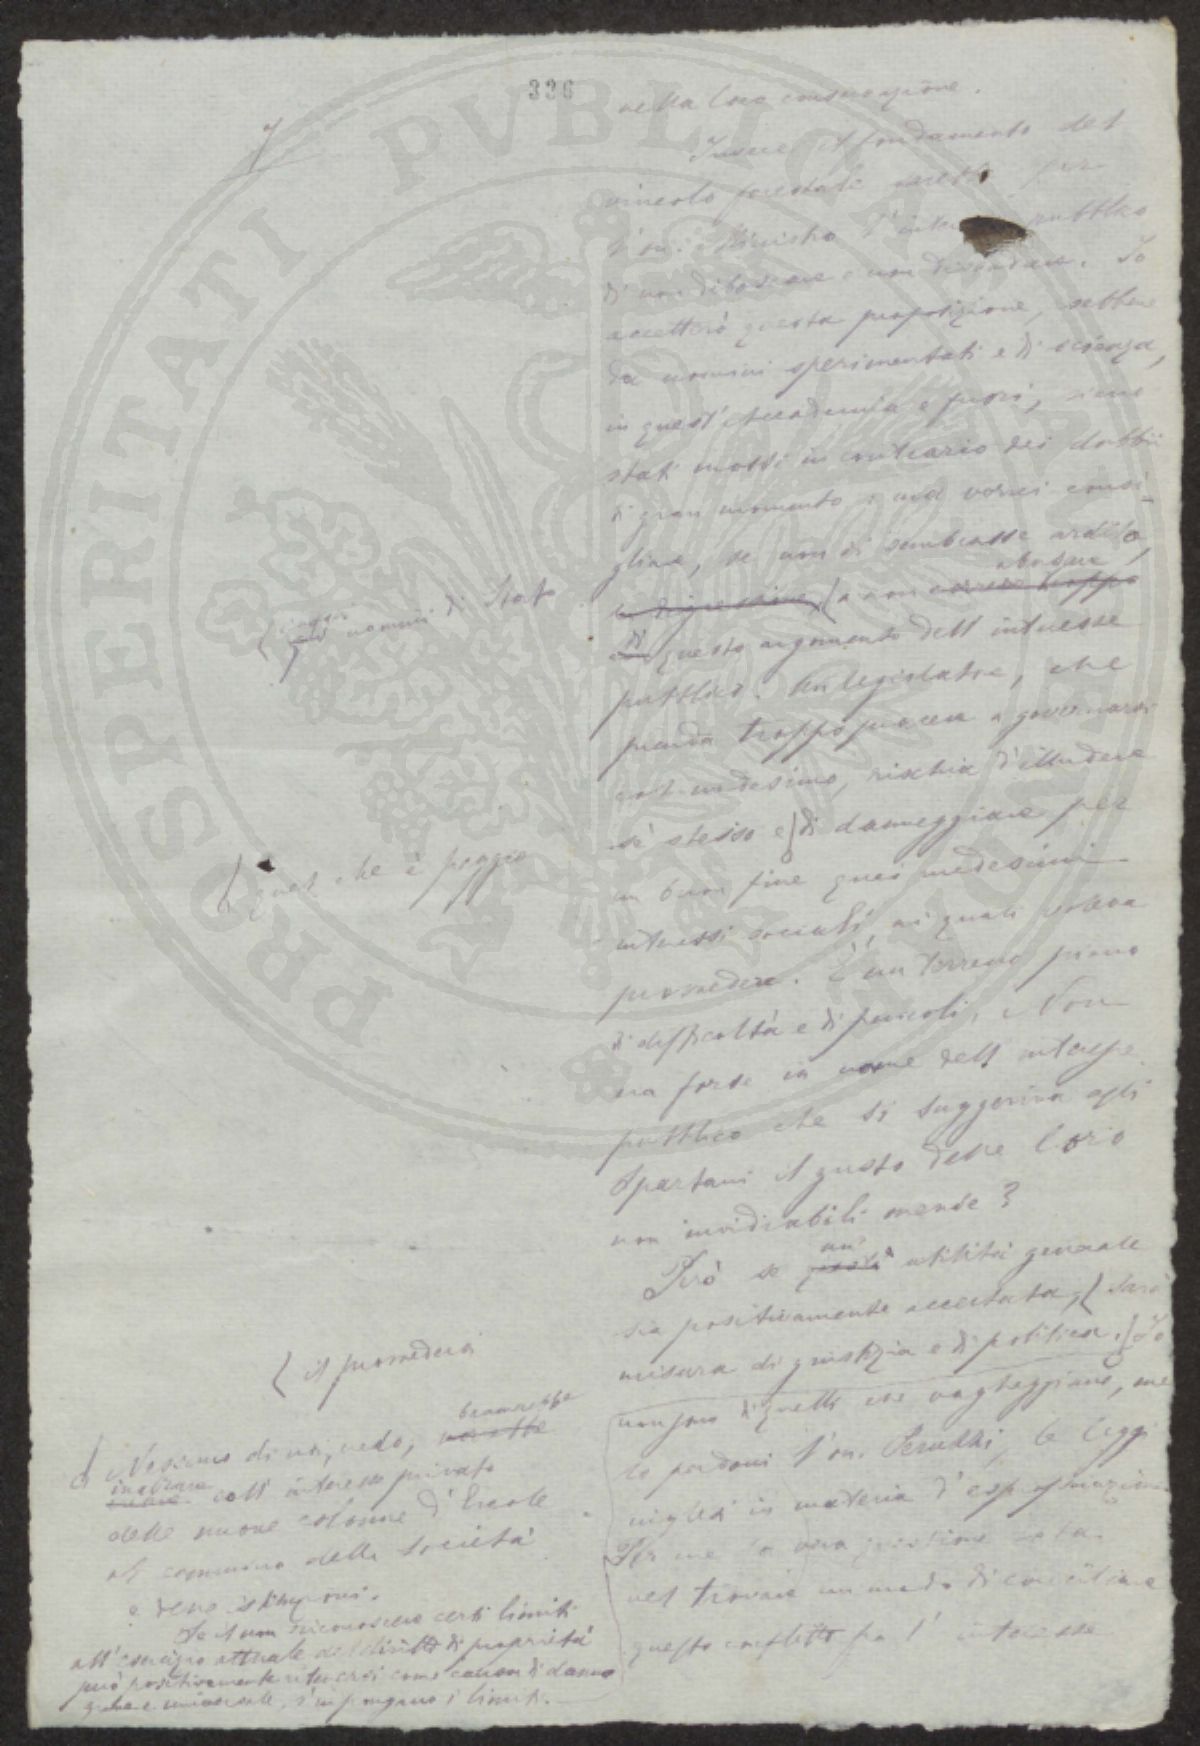 336
7
nella loro conservazione.
Invece il fondamento del
vincolo forestale sarebbe per
l'on. Ministro l'interesse pubblico
di non disboscare e non dissodare. Io
accetterò questa proposizione, sebbene
da uomini sperimentati e di scienza,
in quest'Accademia e fuori, siano
stati mossi in contrario dei dubbii
di gran momento: ma vorrei consi-
gliare, se non si sembrasse ardito,
abusare
la digressione, a non correre troppo
di questo argomento dell'interesse
pubblico. Un legislatore, che
prenda troppo piacere a governarsi
col medesimo, rischia d'illudere
sè stesso e di danneggiare per
un buon fine quei medesimi
interessi sociali, ai quali voleva
provvedere. È un terreno pieno
di difficoltà e di pericoli. Non
era forse in nome dell'interesse
pubblico che si suggeriva agli
Spartani il gusto delle loro
non invidiabili mense?
un'
Però se utilità generale
sia positivamente accertata, sarà
misura di giustizia e di politica. Io
non sono di quelli che vagheggiano, me
lo perdoni l'on. Peruzzi, le leggi
inglesi in materia d'espropriazione
Per me la vera questione sta
nel trovare un modo di conciliare
questo conflitto fra l'interesse
uomini di Stato
quel che è peggio
il provvedervi
bramerebbe
Nessuno di noi, credo,
inalzare coll'interesse privato
delle nuove colonne d'Ercole
al cammino della Società
e delle istituzioni.
Se il non riconoscere certi limiti
all'esercizio attuale del diritto di proprietà
può positivamente ritenersi come causa di danno
grave e universale, s'impongano i limiti.